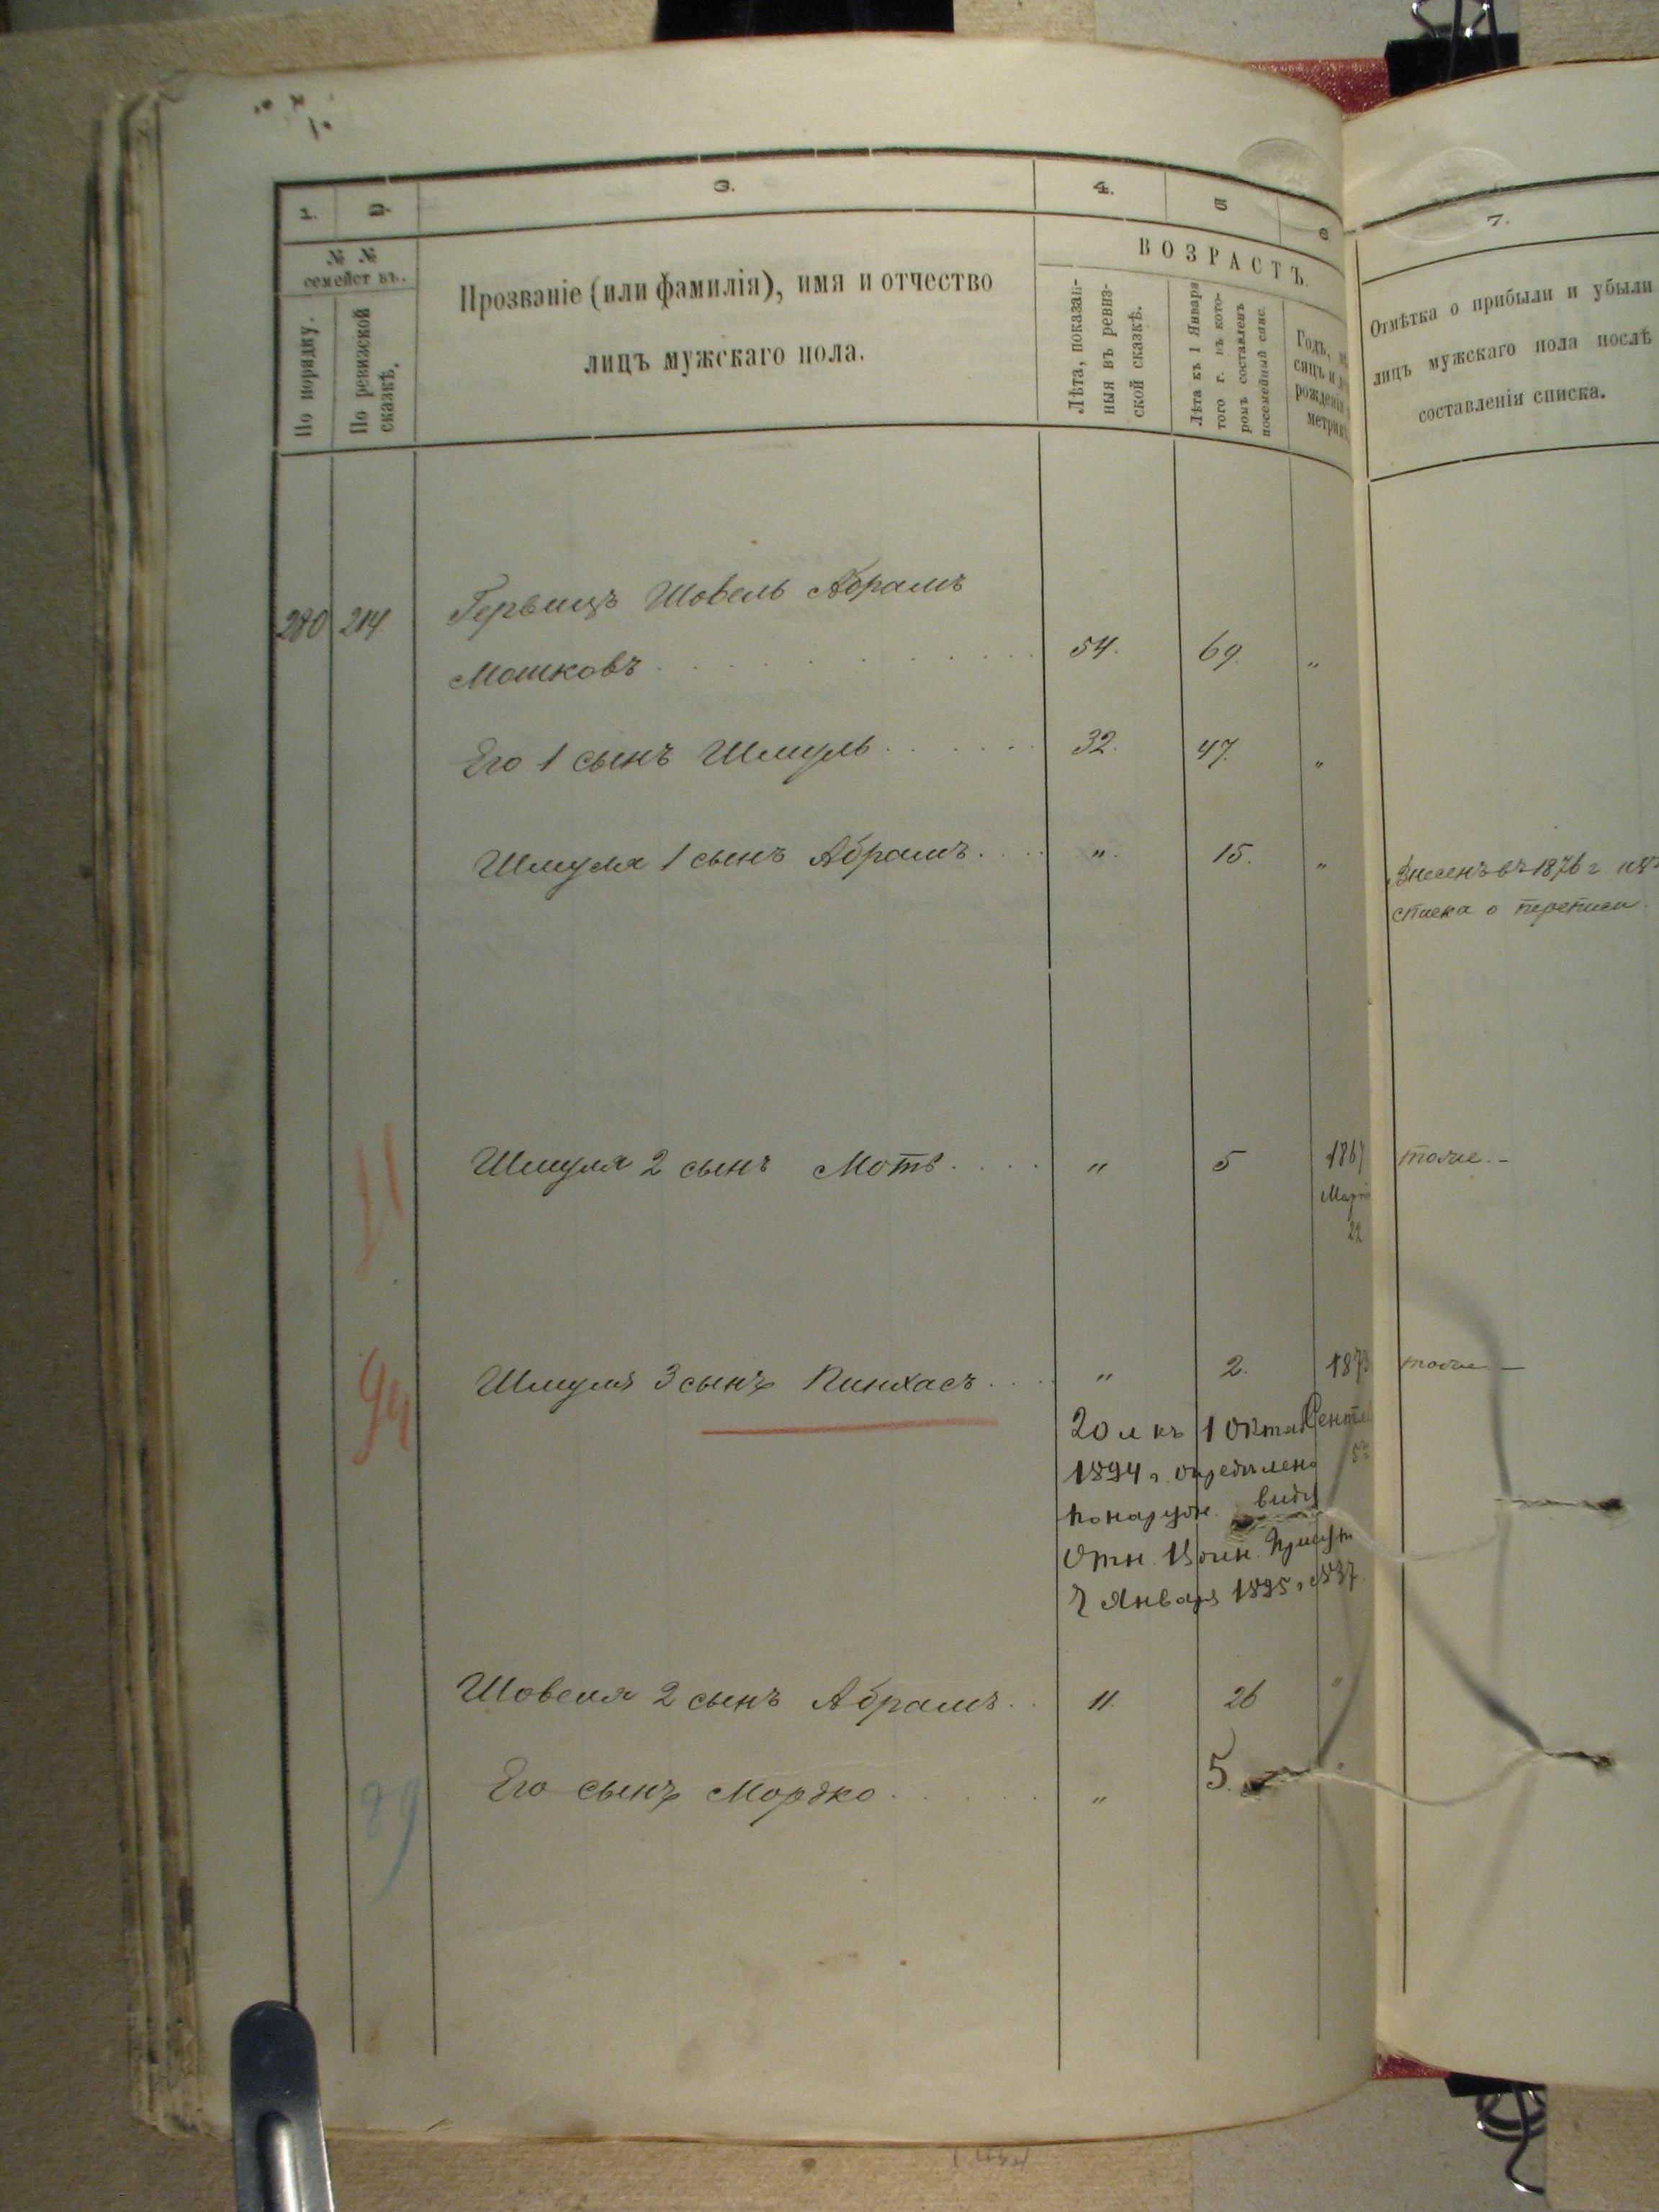 1. 2. 3. 4. 5 6 7.
№ №
семейст въ.
По порядку.
По ревизской
сказкѣ.
Прозваніе (или фамилія), имя и отчество
лицъ мужскаго пола.
ВОЗРАСТЪ.
Лѣта, показан-
ныя въ ревиз-
ской сказкѣ.
Лѣта къ 1 Января
того г. въ кото-
ромъ составленъ
посемейный спис.
Годъ, мѣ
сяцъ и
рожденія
метрик
Отмѣтка о прибыли и убыли
лицъ мужскаго пола послѣ
составленія списка.
280 214. Гервицъ Шовель Абрамъ
Мошковъ 54. 69. "
Его 1 сынъ Шмуль 32. 47. "
Шмуля 1 сынъ Абрамъ " 15. " Внесенъ въ 1876 г. изъ
списка о переписи.
Шмуля 2 сынъ Мотъ " 5 1867 тоже. -
Март
22
94 Шмуля 3 сынъ Пинхасъ " 2. 1873 тоже -
20 л къ 1 Октяб Сентя
1894 г. опредѣлено 5
по наружн. виду
Отн. Воин. Присут
7 Января 1895 г. № 37.
Шовеля 2 сынъ Абрамъ 11. 26 "
89 Его сынъ Мордко " 5. "